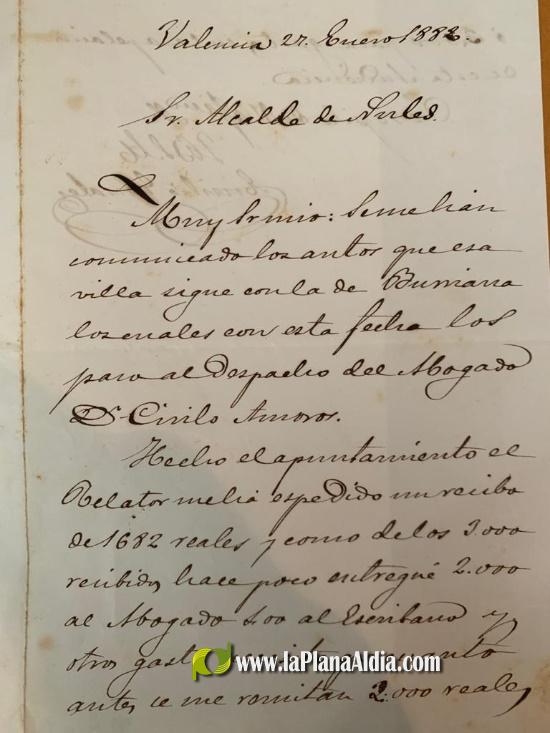 Valencia 27. Enero 1882.
Sr. Alcalde de Nules.
Muy Sr mio: Se me hán
comunicado los autos que esa
villa sigue con la de Burriana
los cuales con esta fecha los
paso al despacho del Abogado
Dn Cirilo Amoros.
Hecho el apuntamiento el
Relator me há espedido un recibo
de 1682 reales y como de los 3.000
recibidos hace poco entregué 2.000
al Abogado 400 al Escribano y
otros gastos
antes se me remitan 2.000 reales
www.laPlanaAldia.com